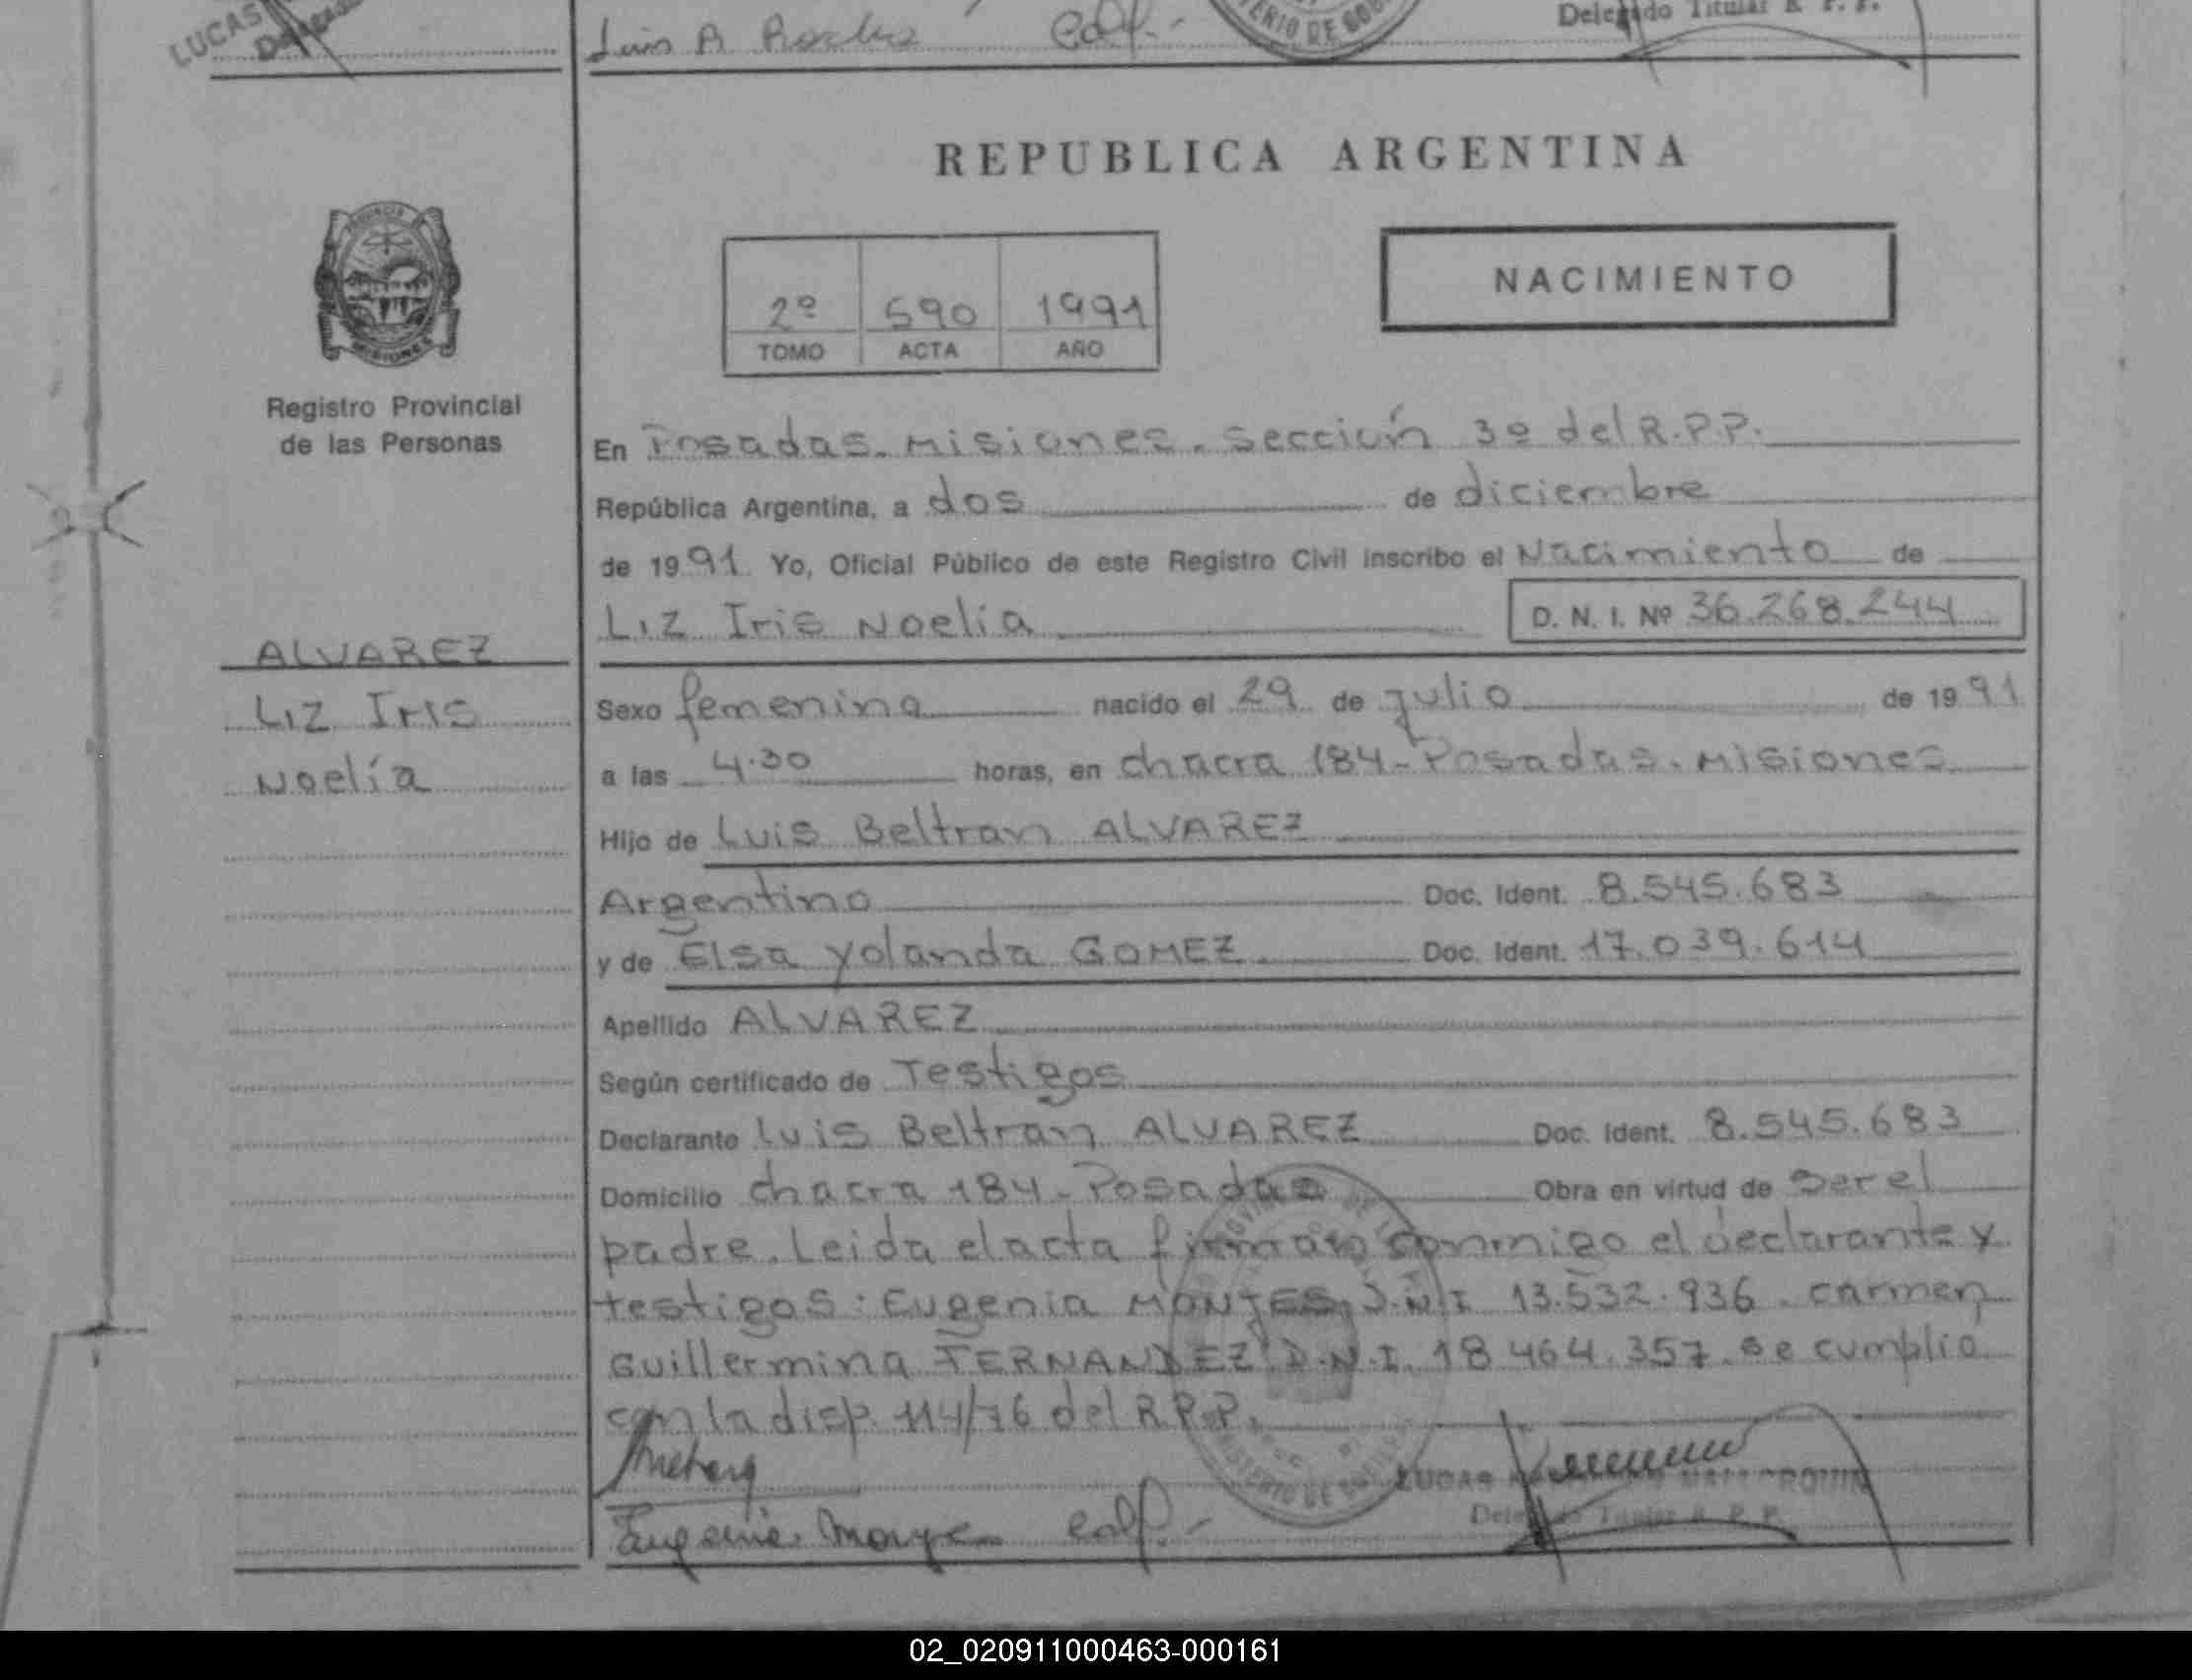 LUCAS
Luis A
Delegado Titular R P. P.
MINISTERIO DE GOB
REPUBLICA ARGENTINA
PROVINCIA
MISIONES
Registro Provincial
de las Personas
2º 590 1991
TOMO ACTA AÑO
NACIMIENTO
En Posadas. Misiones. Sección 3º del R.P.P.
República Argentina, a dos de diciembre
de 1991 Yo, Oficial Público de este Registro Civil inscribo el Nacimiento de
Liz Iris Noelia D. N. I. Nº 36.268.244
ALVAREZ
Liz Iris
Noelia
Sexo femenina nacido el 29 de julio de 1991
a las 4.30 horas, en chacra 184 - Posadas. Misiones
Hijo de Luis Beltran ALVAREZ
Argentino Doc. Ident. 8.545.683
y de Elsa Yolanda GOMEZ. Doc. Ident. 17.039.614
Apellido ALVAREZ
Según certificado de Testigos
Declarante Luis Beltran ALVAREZ Doc. Ident. 8.545.683
Domicilio chacra 184 - Posadas Obra en virtud de Ser el
padre. Leida el acta firman conmigo el declarante y
testigos: Eugenia MONJES, D.N.I 13.532.936. carmen
Guillermina FERNANDEZ D.N.I. 18 464.357. se cumplio
con la disp. 114/76 del R.P.P.
LUCAS
Delegado Titular R. P. P.
02_020911000463-000161